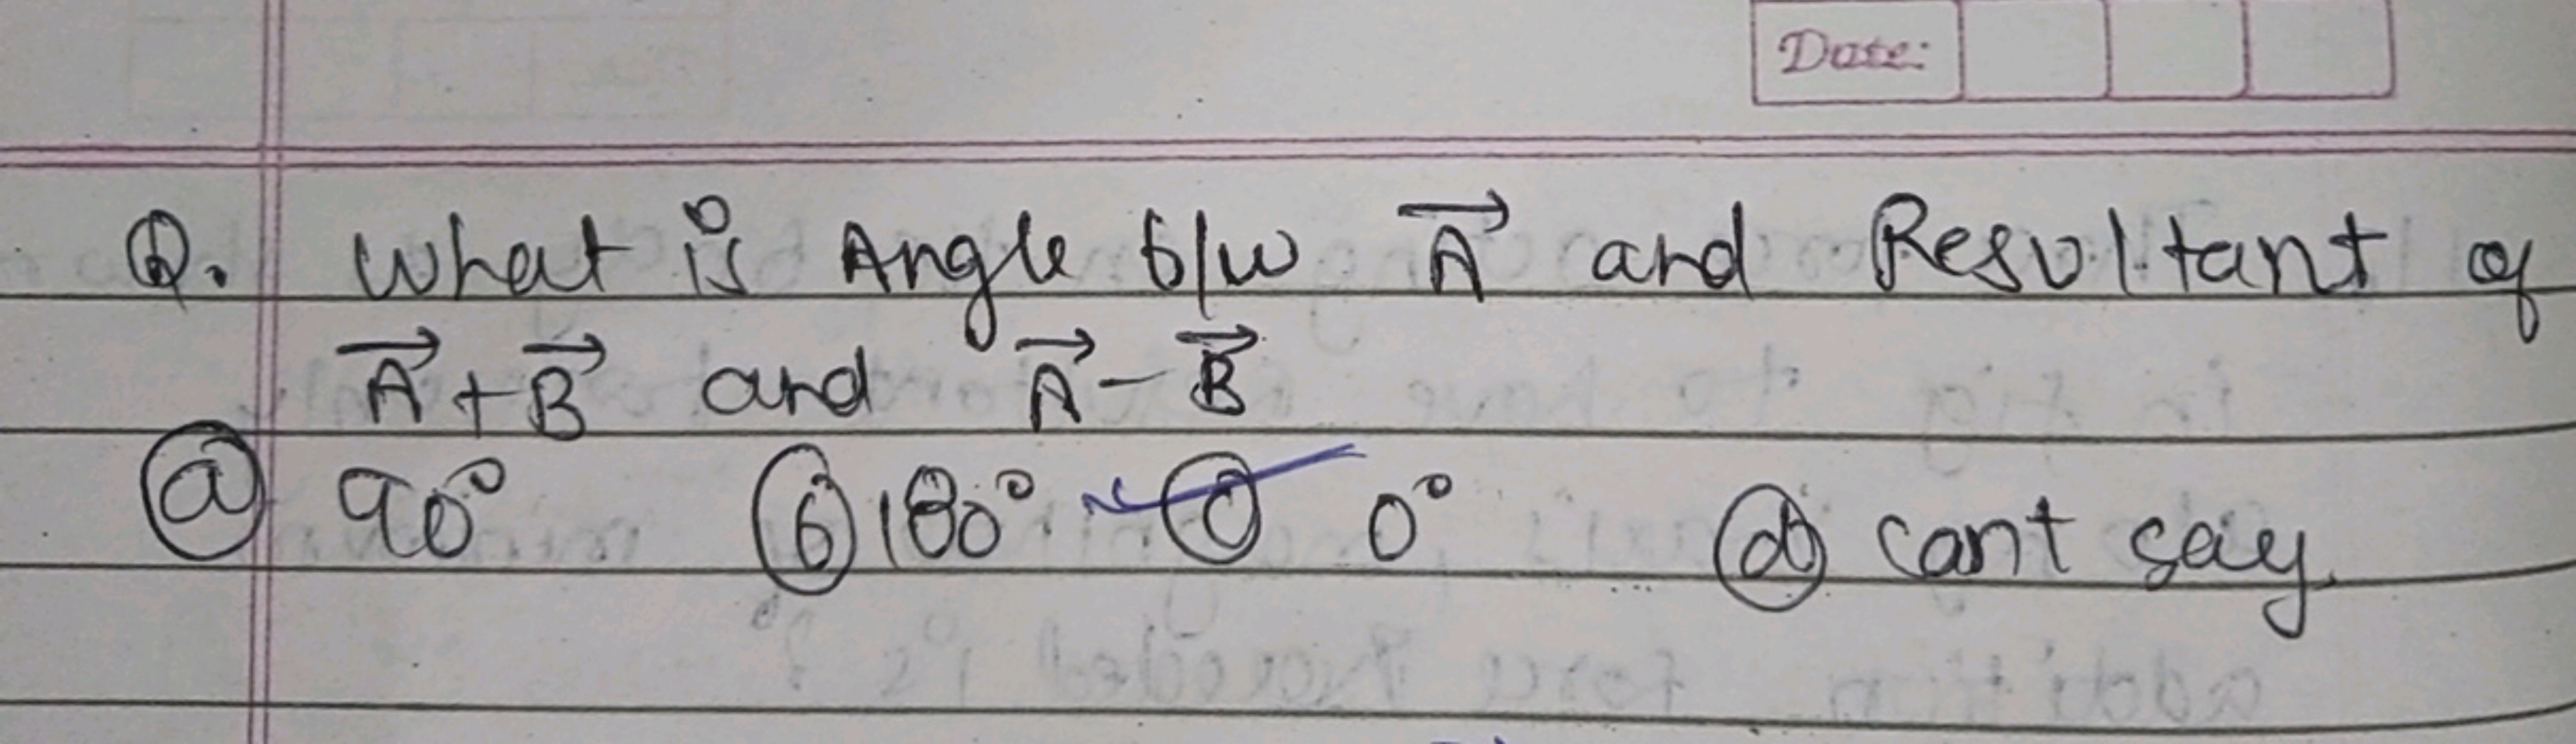 Date:
Q. What is Angle b/w A⃗ and Resultant of
A⃗+B⃗ and A⃗-B⃗
ⓐ 90° ⓑ 180° ⓒ 0° ⓓ cant say.